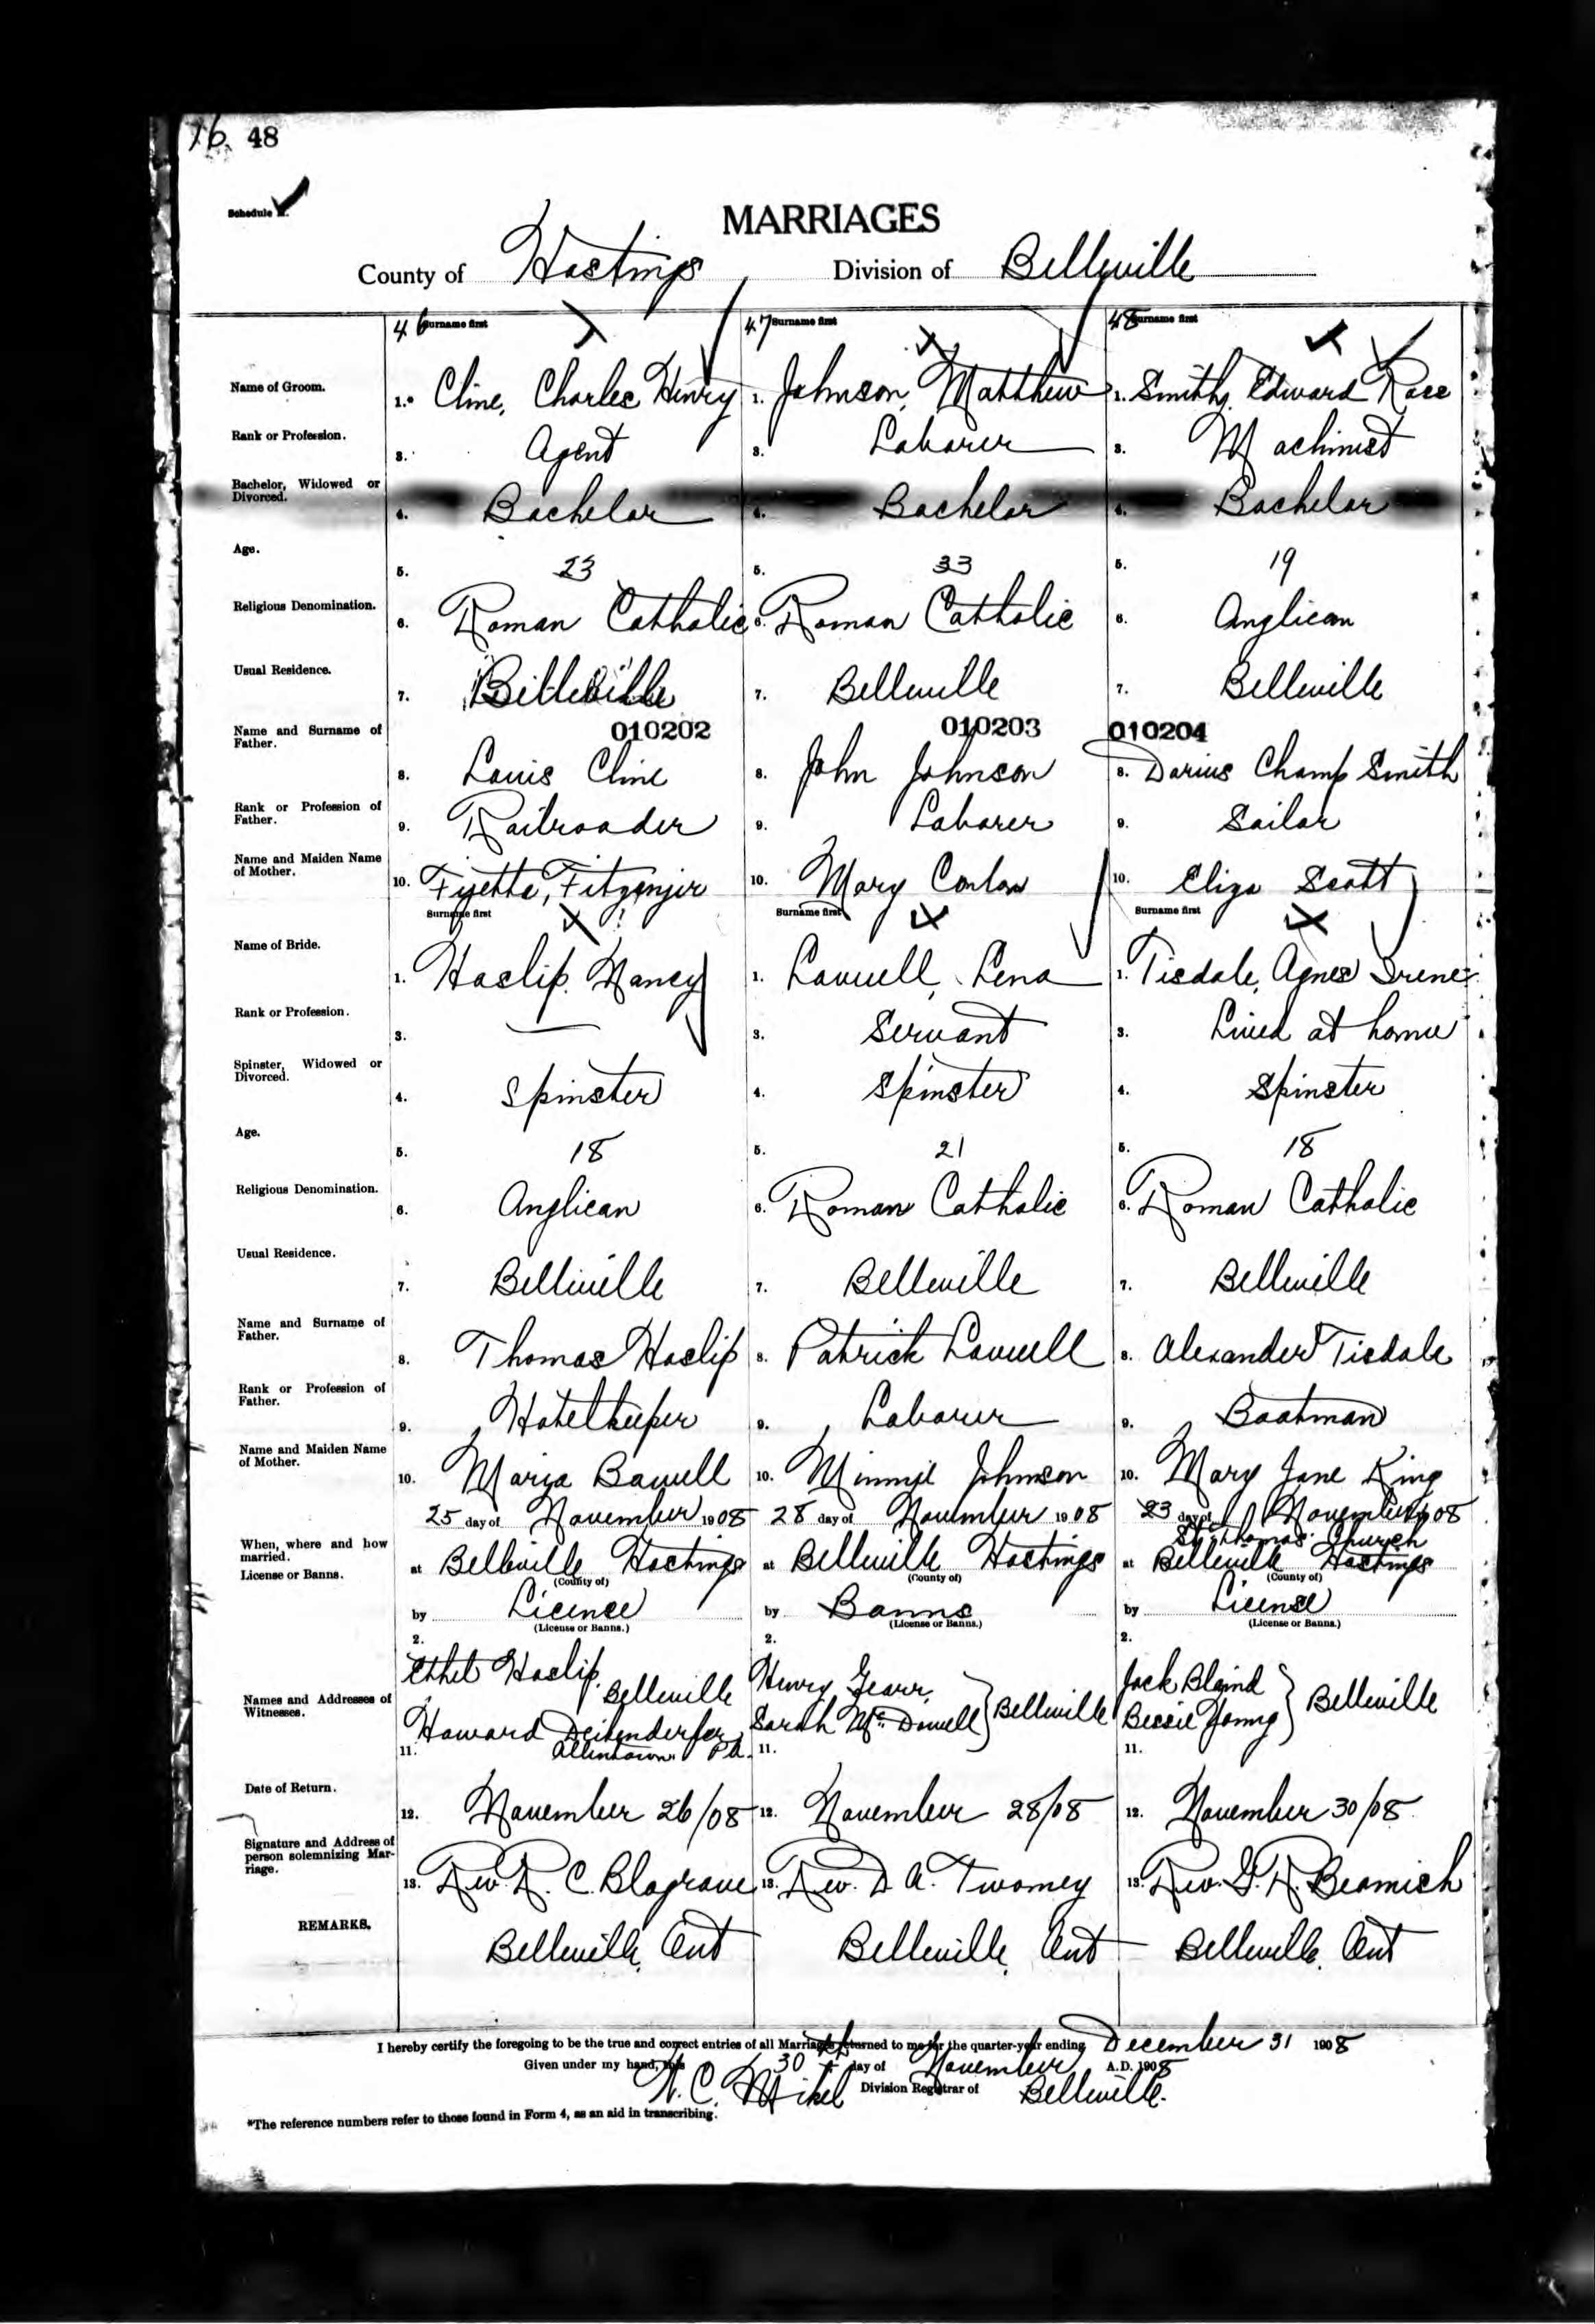 76. 48
Schedule
MARRIAGES
County of Hastings Division of Belleville
46 Surname first 47 Surname first 48 Surname first
Name of Groom. 1.* Cline, Charles Henry 1. Johnson, Matthew 1. Smith, Edward Ross
Rank or Profession. 3. Agent 3. Laborer 3. Machinist
Bachelor, Widowed or Divorced. 4. Bachelor 4. Bachelor 4. Bachelor
Age. 5. 23 5. 33 5. 19
Religious Denomination. 6. Roman Catholic 6. Roman Catholic 6. Anglican
Usual Residence. 7. Belleville 7. Belleville 7. Belleville
010202 010203 010204
Name and Surname of Father. 8. Louis Cline 8. John Johnson 8. Darius Champ Smith
Rank or Profession of Father. 9. Railroader 9. Laborer 9. Sailor
Name and Maiden Name of Mother. 10. 10. Mary Conlon 10. Eliza Scott
Surname first Surname first Surname first
Name of Bride. 1. Haslip, Nancy 1. Lena 1. Tisdale, Agnes Irene
Rank or Profession. 3. — 3. Servant 3. Lived at home
Spinster, Widowed or Divorced. 4. Spinster 4. Spinster 4. Spinster
Age. 5. 18 5. 21 5. 18
Religious Denomination. 6. Anglican 6. Roman Catholic 6. Roman Catholic
Usual Residence. 7. Belleville 7. Belleville 7. Belleville
Name and Surname of Father. 8. Thomas Haslip 8. Patrick 8. Alexander Tisdale
Rank or Profession of Father. 9. Hotelkeeper 9. Laborer 9. Boatman
Name and Maiden Name of Mother. 10. Maria 10. Minnie Johnson 10. Mary Jane King
25 day of November 1908 28 day of November 1908 23 day of November 1908
St. Thomas' Church
When, where and how married. at Belleville Hastings at Belleville Hastings at Belleville Hastings
(County of) (County of) (County of)
License or Banns. by License by Banns by License
(License or Banns.) (License or Banns.) (License or Banns.)
2. 2. 2.
Names and Addresses of Witnesses. Ethel Haslip, Belleville Henry Jack
Howard Deibenderfer, Sarah McDowell } Belleville Bessie Young } Belleville
11. Allentown Pa. 11. 11.
Date of Return. 12. November 26/08 12. November 28/08 12. November 30/08
Signature and Address of person solemnizing Marriage. 13. Rev. R. C. Blagrave 13. Rev. D. A. Twomey 13. Rev. G. R. Beamish
REMARKS. Belleville, Ont Belleville, Ont Belleville, Ont
I hereby certify the foregoing to be the true and correct entries of all Marriages returned to me for the quarter-year ending December 31 1908
Given under my hand, this 30 day of November A.D. 1908
W. C. Mikel Division Registrar of Belleville.
*The reference numbers refer to those found in Form 4, as an aid in transcribing.